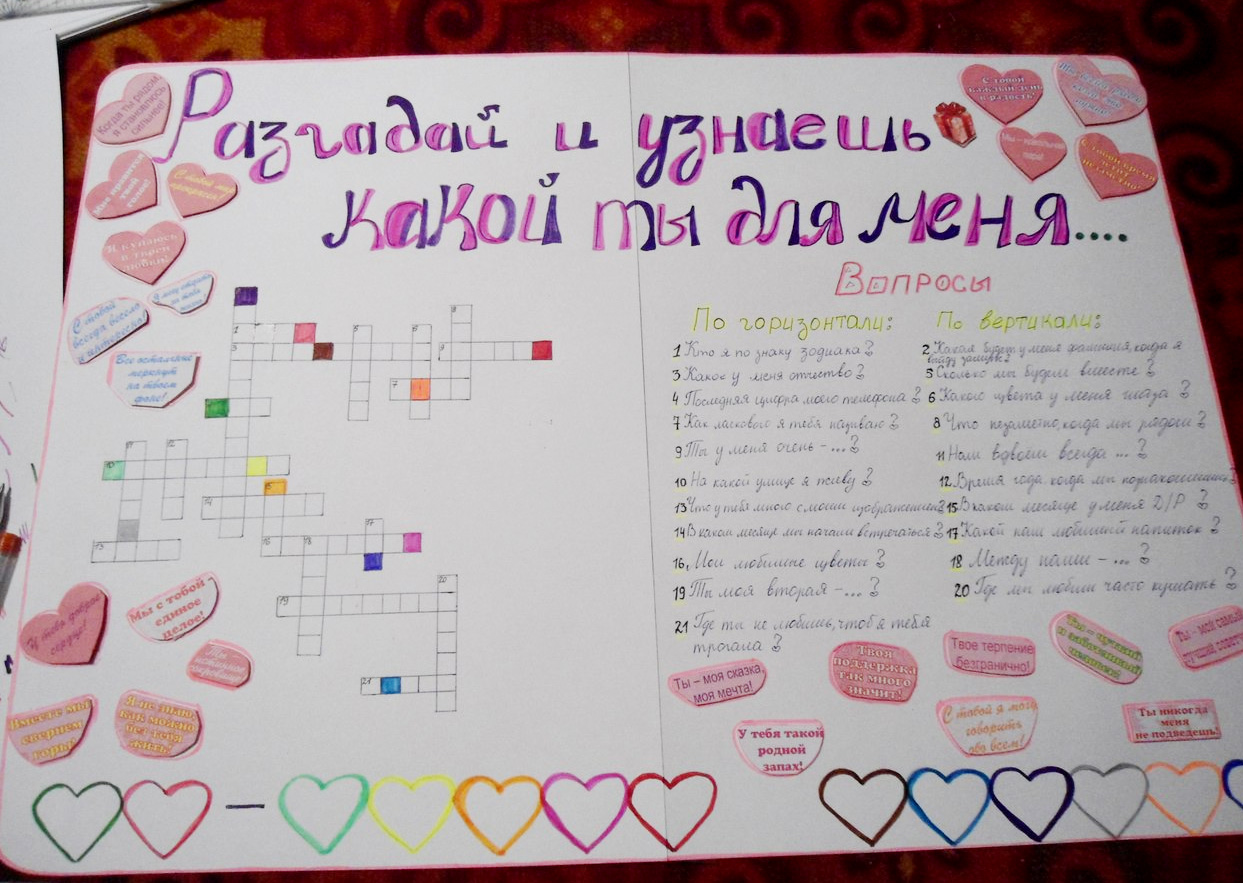 Разгадай и узнаешь
какой ты для меня....
Когда ты рядом,
я становлюсь
сильнее!
Мне нравится
твой
голос!
С тобой
каждый день
в радость!
Я купаюсь
в твоей
любви!
С тобой
всегда весело
и интересно!
Все остальные
меркнут
на твоем
фоне!
Вопросы
По горизонтали:
1 Кто я по знаку зодиака?
3 Какое у меня отчество?
4 Последняя цифра моего телефона?
7 Как ласково я тебя называю?
9 Ты у меня очень - ...?
10 На какой улице я живу?
13 Что у тебя много с моим изображением?
14 В каком месяце мы начали встречаться?
16, Мои любимые цветы?
19 Ты моя вторая - ...?
21 Где ты не любишь, чтоб я тебя
трогала?
По вертикали:
2 Какая будет у меня фамилия, когда я
выйду замуж?
5 Сколько мы будем вместе?
6 Какого цвета у меня глаза?
8 Что незаметно, когда мы рядом?
11 Нам вдвоём всегда ...?
12 Время года, когда мы познакомились?
15 В каком месяце у меня Д/Р?
17 Какой наш любимый напиток?
18 Между нами - ...?
20 Где мы любим часто кушать?
1
3
5
6
7
8
9
10
11
12
13
14
15
16
17
18
19
20
21
У тебя доброе
сердце!
Мы с тобой
единое
целое!
Ты -
сокровище!
Вместе мы
свернем
горы!
Я не знаю,
как можно
без тебя
жить!
Ты – моя сказка,
моя мечта!
Твоя
поддержка
так много
значит!
Твое терпение
безгранично!
Ты – чуткий
и заботливый
человек!
У тебя такой
родной
запах!
С тобой я могу
говорить
обо всем!
Ты никогда
меня
не подведешь!